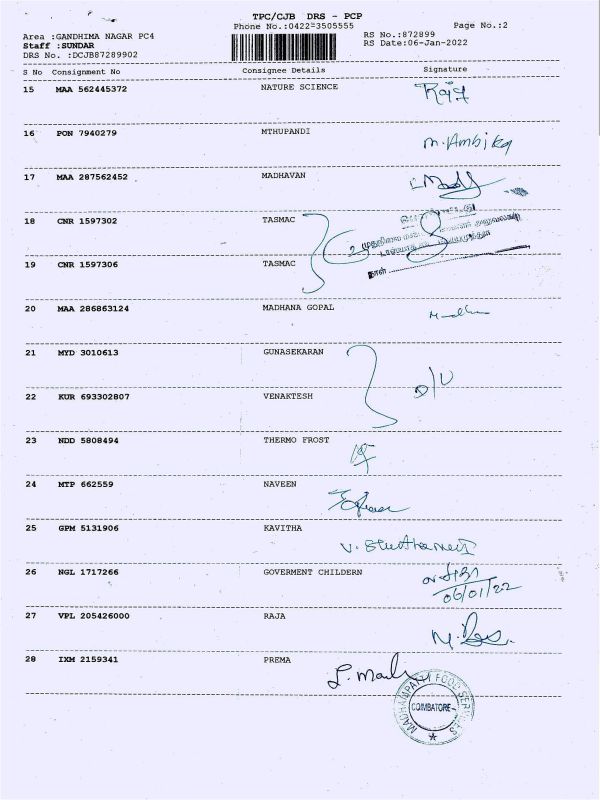 TPC/CJB DRS - PCP
Phone No.:0422-3505555 Page No.:2
Area :GANDHIMA NAGAR PC4 RS No.:872899
Staff :SUNDAR RS Date:06-Jan-2022
DRS No. :DCJB87289902
S No Consignment No Consignee Details Signature
15 MAA 562445372 NATURE SCIENCE
16 PON 7940279 MTHUPANDI M. Ambika
17 MAA 287562452 MADHAVAN
18 CNR 1597302 TASMAC
19 CNR 1597306 TASMAC
நாள்
20 MAA 286863124 MADHANA GOPAL
21 MYD 3010613 GUNASEKARAN
D/U
22 KUR 693302807 VENAKTESH
23 NDD 5808494 THERMO FROST
24 MTP 662559 NAVEEN
25 GPM 5131906 KAVITHA
26 NGL 1717266 GOVERMENT CHILDERN
06/01/22
27 VPL 205426000 RAJA
28 IXM 2159341 PREMA
FOOD SERVICES
COIMBATORE